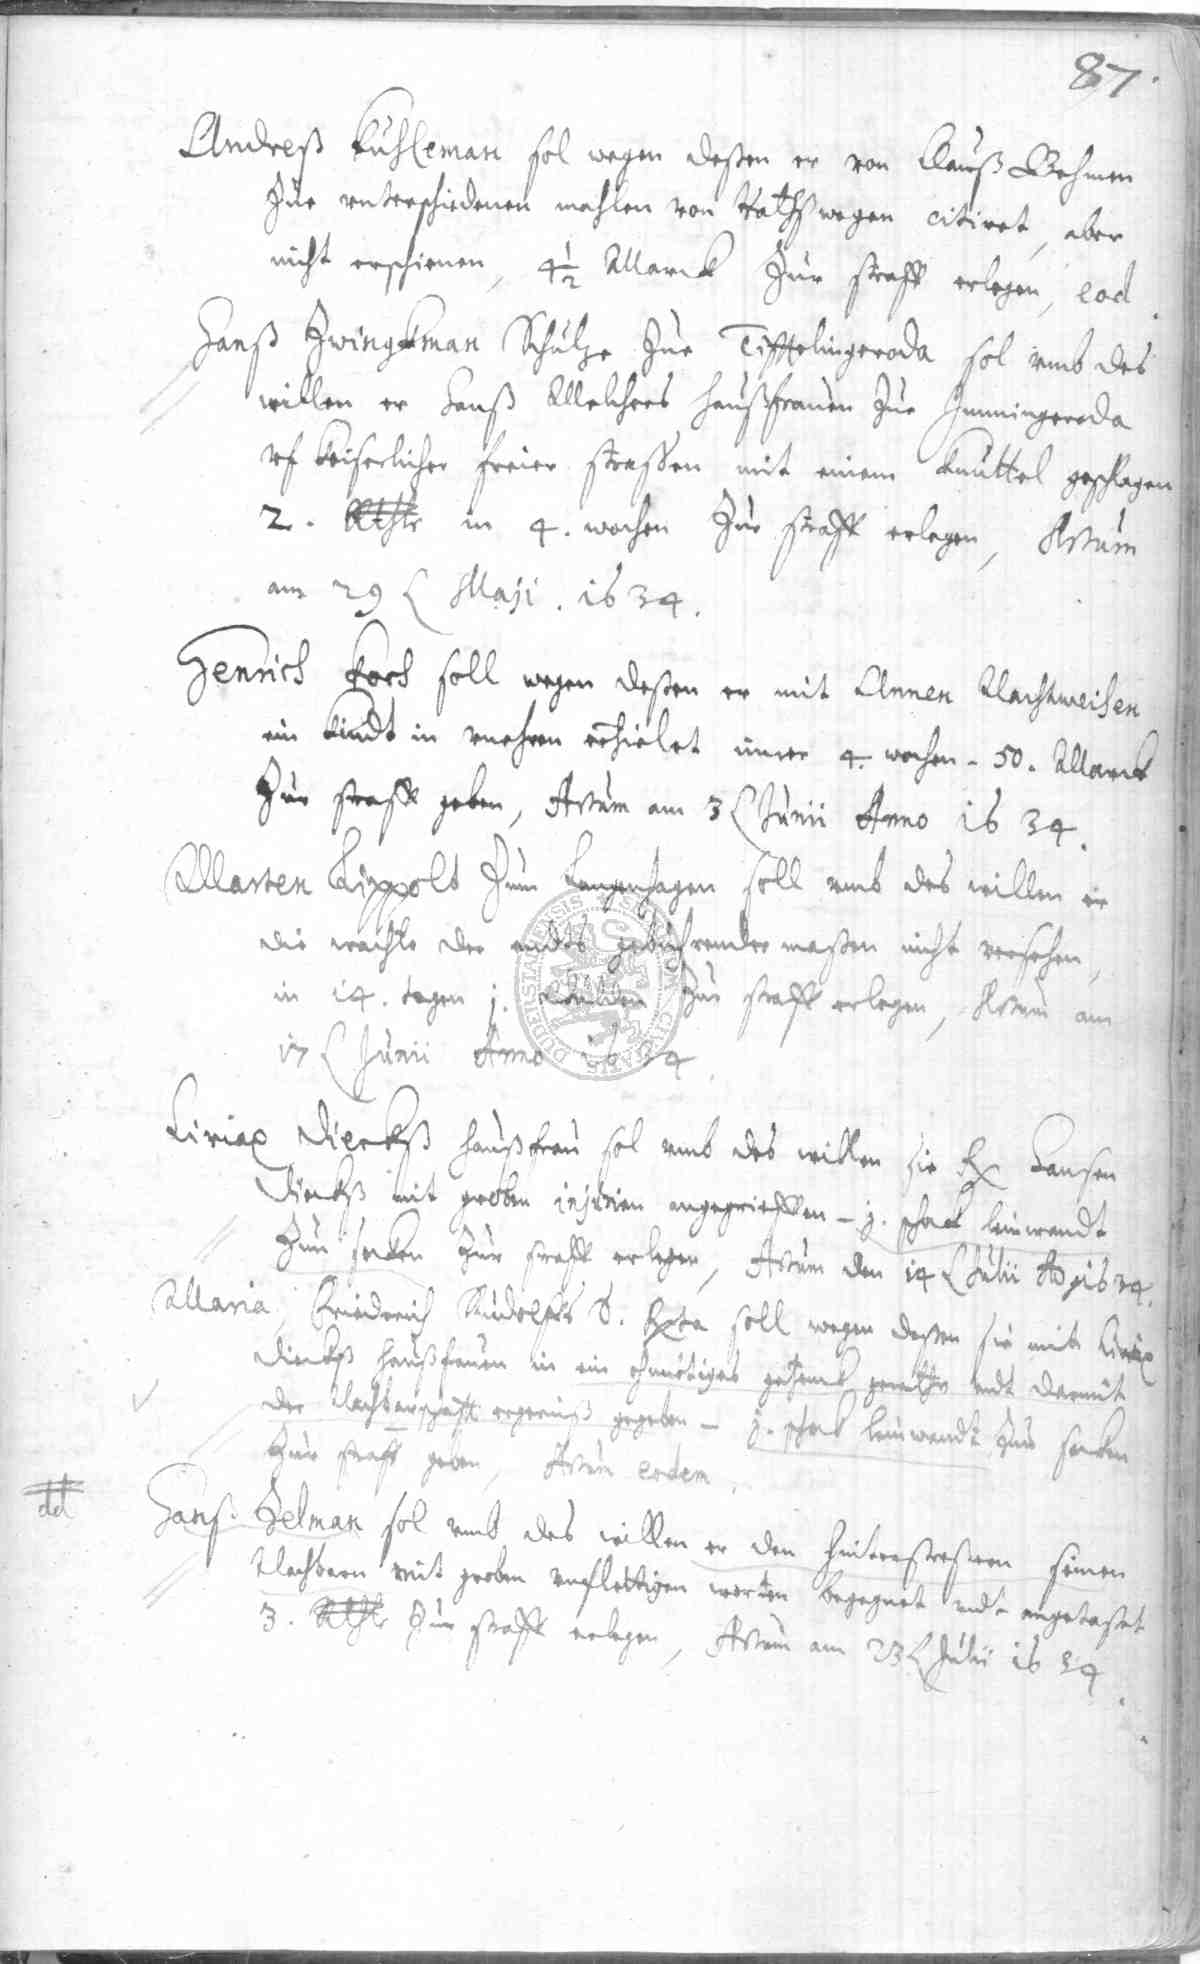 87.
Andreß Kuhleman sol wegen deßen er von Clauß Behmen
Zue unterschiedenen mahlen von Raths wegen citiret, aber
nicht erschienen, 4½ Marck Zur straff erlegen, eod.
Hanß Zwingkman Schultze Zue Tifftlingeroda sol umb des
willen er Hanß Melchers haußfrauen Zue Immingeroda
uf keiserlicher freier strassen mit einem knuttel geschlagen
2. Rthlr in 4. wochen Zur straff erlegen, Actum
am 29 Maji. 1634.
Henrich Koch soll wegen deßen er mit Annen Nachtweihen
ein kindt in unehren erzielet inner 4. wochen - 50. Marck
Zur straff geben, Actum am 3 Junii Anno 1634.
Marten Lippolt Zum Langenhagen soll umb des willen er
die wachte der endts gebuhrender maßen nicht versehen,
in 14. tagen j. Zur straff erlegen, Actum am
17 Junii Anno 1634.
Ciriax Dierkß haußfrau sol umb des willen sie Hansen
Dierkß mit groben injurien angegrieffen - j. schock leinwandt
Zun secken Zur straff erlegen, Actum den 14 Julii Ao 1634.
Maria, Friedreich Rudolffs soll wegen deßen sie mit Ciriax
Dierkß haußfrauen in ein gezenck undt darmit
der Nachbarschafft ergerniß gegeben - j. schock leinwandt Zun secken
Zur straff geben, Actum eodem.
dd
Hanß Helman sol umb des willen er den seinen
Nachbarn mit groben unflettigen worten begegnet undt angetastet
3. Rthlr Zur straff erlegen, Actum am 23 Julii 1634.
SIGILLUM CIVITATIS DUDERSTADENSIS